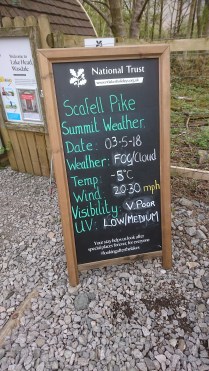 Welcome to
Lake Head
Wasdale
National Trust
Scafell Pike
Summit Weather
Date: 03-5-18
Weather: FOG/Cloud
Temp: -5°C
Wind: 20-30 mph
Visibility: V.Poor
UV: LOW/MEDIUM
Your stay helps us look after
special places forever, for everyone